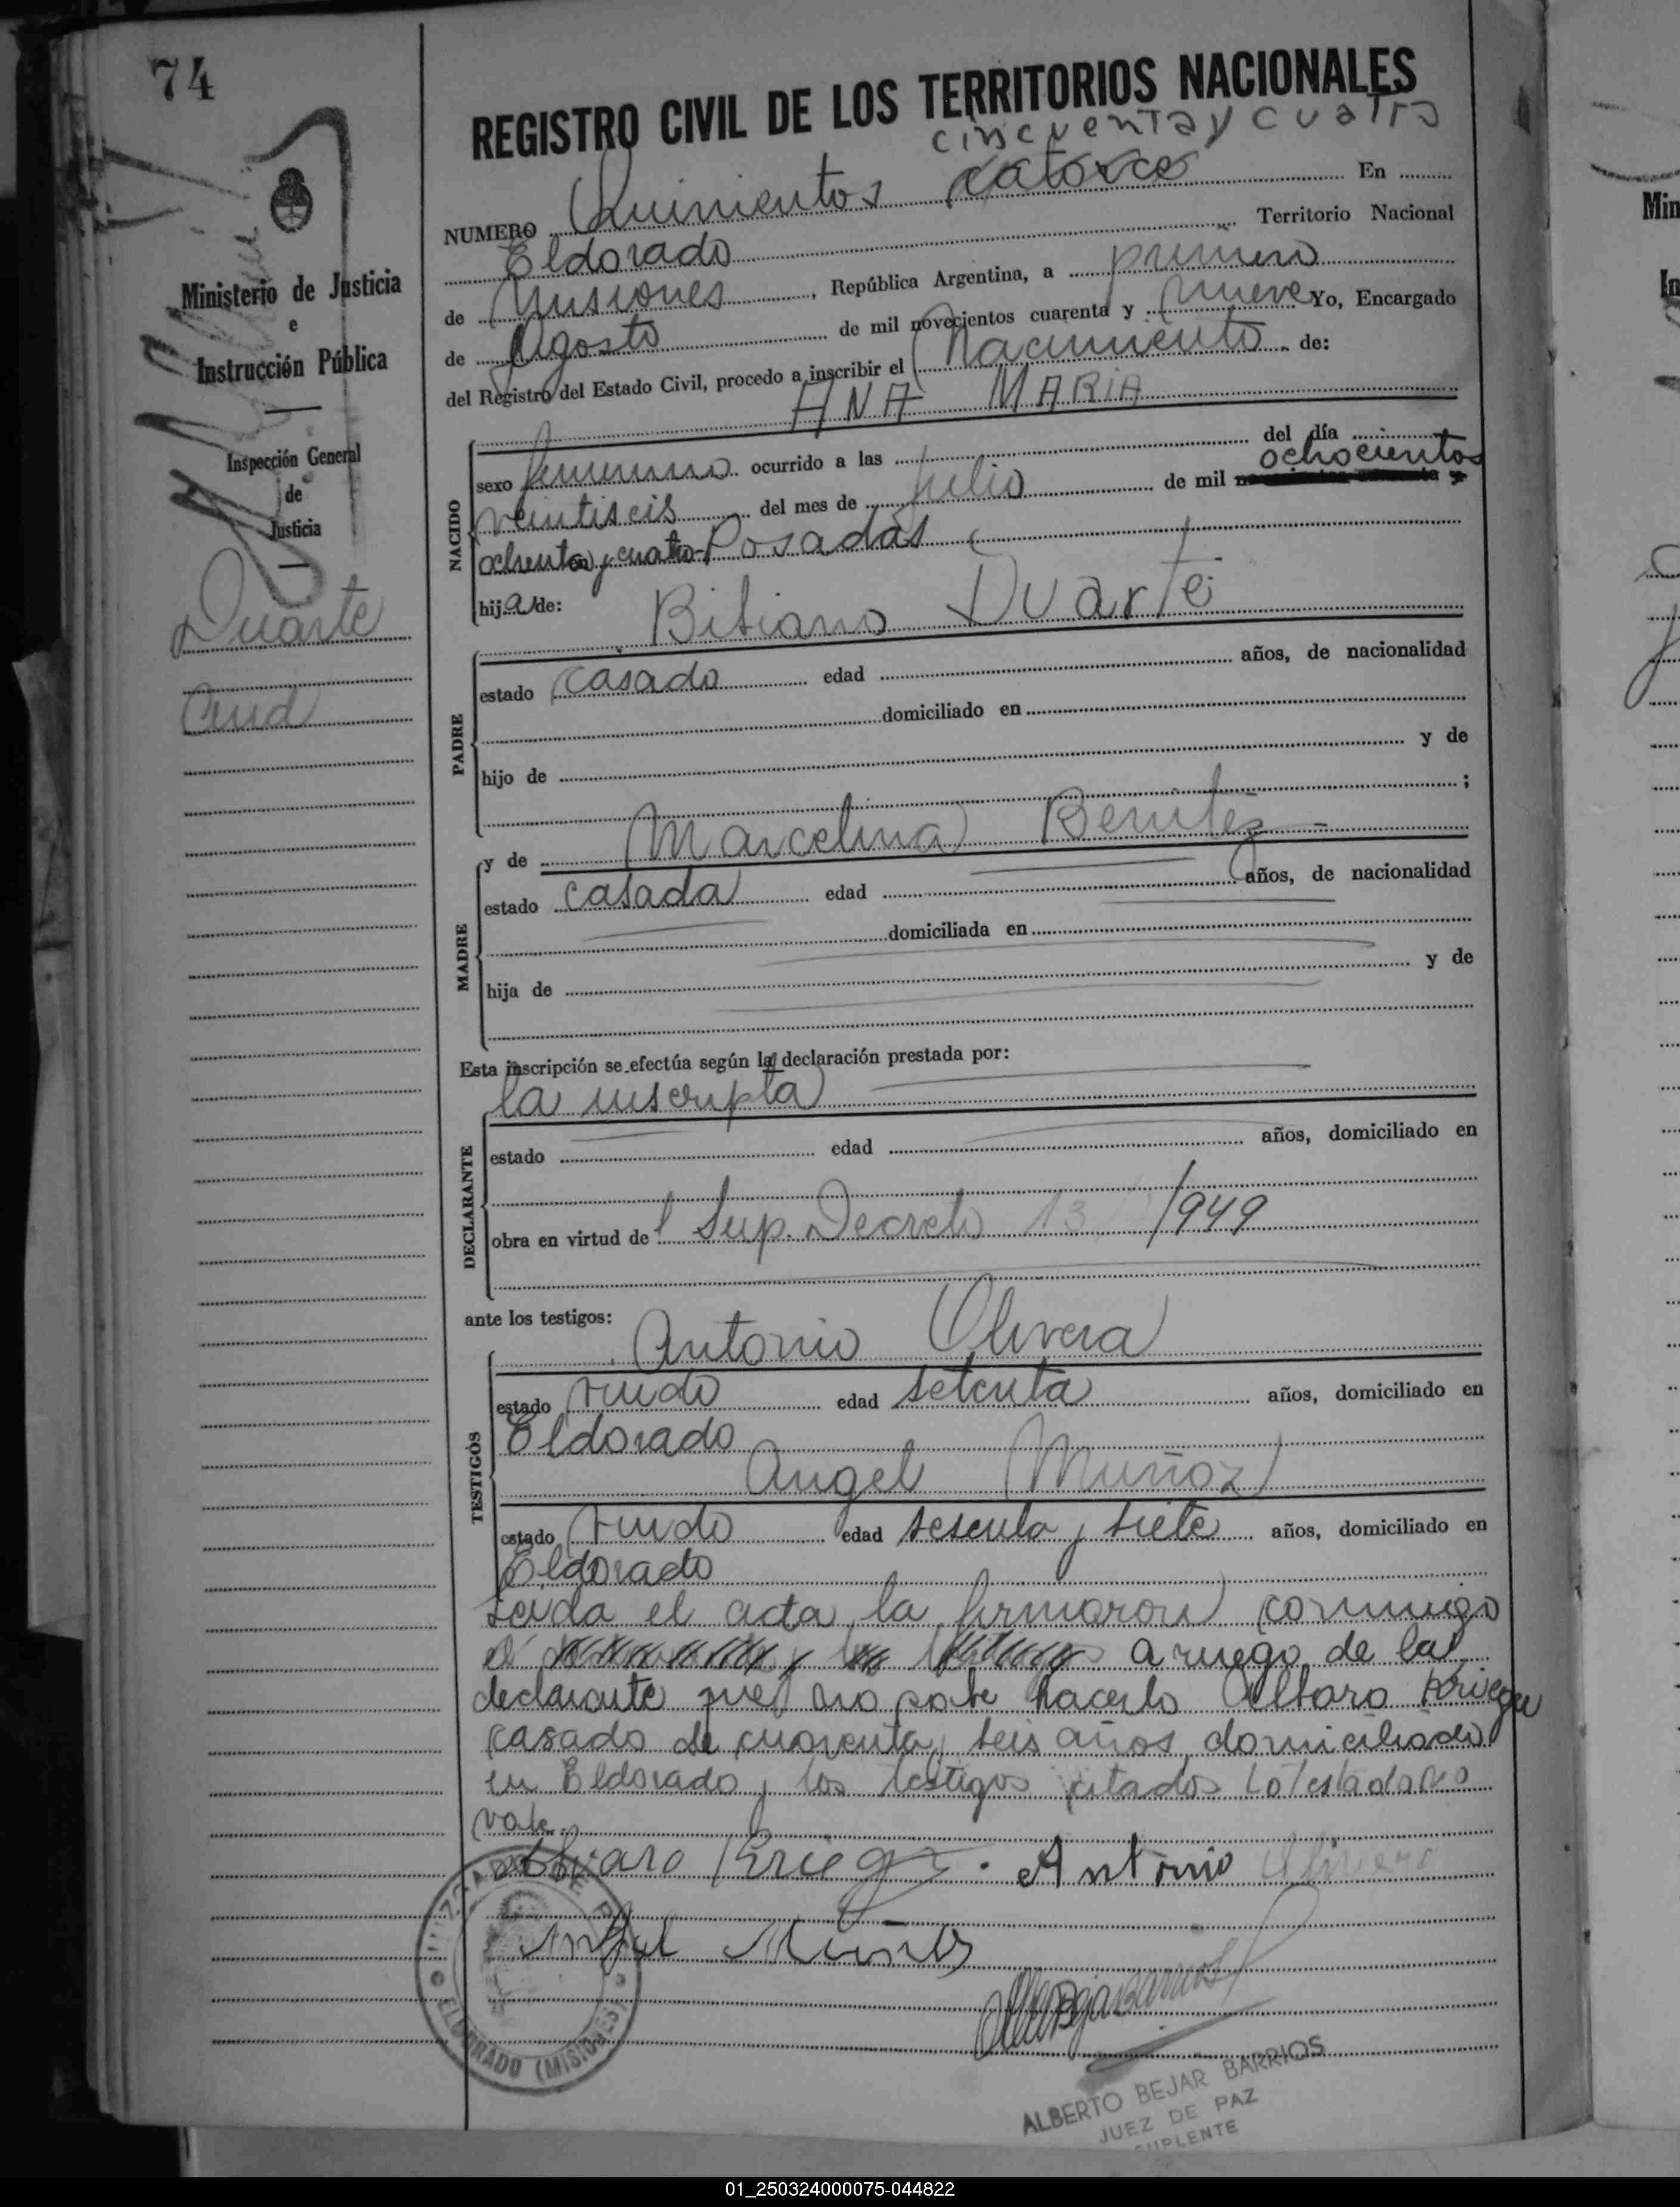 74
REGISTRO CIVIL DE LOS TERRITORIOS NACIONALES
cincuenta y cuatro
NUMERO Quinientos catorce En
Eldorado Territorio Nacional
de Misiones, República Argentina, a primero
de Agosto de mil novecientos cuarenta y nueve Yo, Encargado
del Registro del Estado Civil, procedo a inscribir el Nacimiento de:
ANA MARIA
Ministerio de Justicia
e
Instrucción Pública
Inspección General
de
Justicia
Duarte
NACIDO
sexo femenino ocurrido a las del día
veintiseis del mes de Julio de mil ochocientos
ochenta y cuatro Posadas
hija de:
Bibiano Duarte
PADRE
estado casado edad años, de nacionalidad
domiciliado en
hijo de y de
;
y de Marcelina Benitez
MADRE
estado casada edad años, de nacionalidad
domiciliada en
hija de y de
Esta inscripción se efectúa según la declaración prestada por:
la inscripta
DECLARANTE
estado edad años, domiciliado en
obra en virtud de Sup. Decreto 13 /949
ante los testigos:
Antonio Olivera
TESTIGOS
estado viudo edad setenta años, domiciliado en
Eldorado
Angel Muñoz
estado viudo edad sesenta y siete años, domiciliado en
Eldorado
Leida el acta la firmaron conmigo
a ruego de la
declarante que no sabe hacerlo Alvaro Krieger
casado de cuarenta y seis años domiciliado
en Eldorado y los testigos citados Lo testado no
vale.
Alvaro Krieger. Antonio Olivera
Angel Muñoz
JUZGADO DE PAZ
ELDORADO (MISIONES)
ALBERTO BEJAR BARRIOS
JUEZ DE PAZ
SUPLENTE
Min
In
01_250324000075-044822